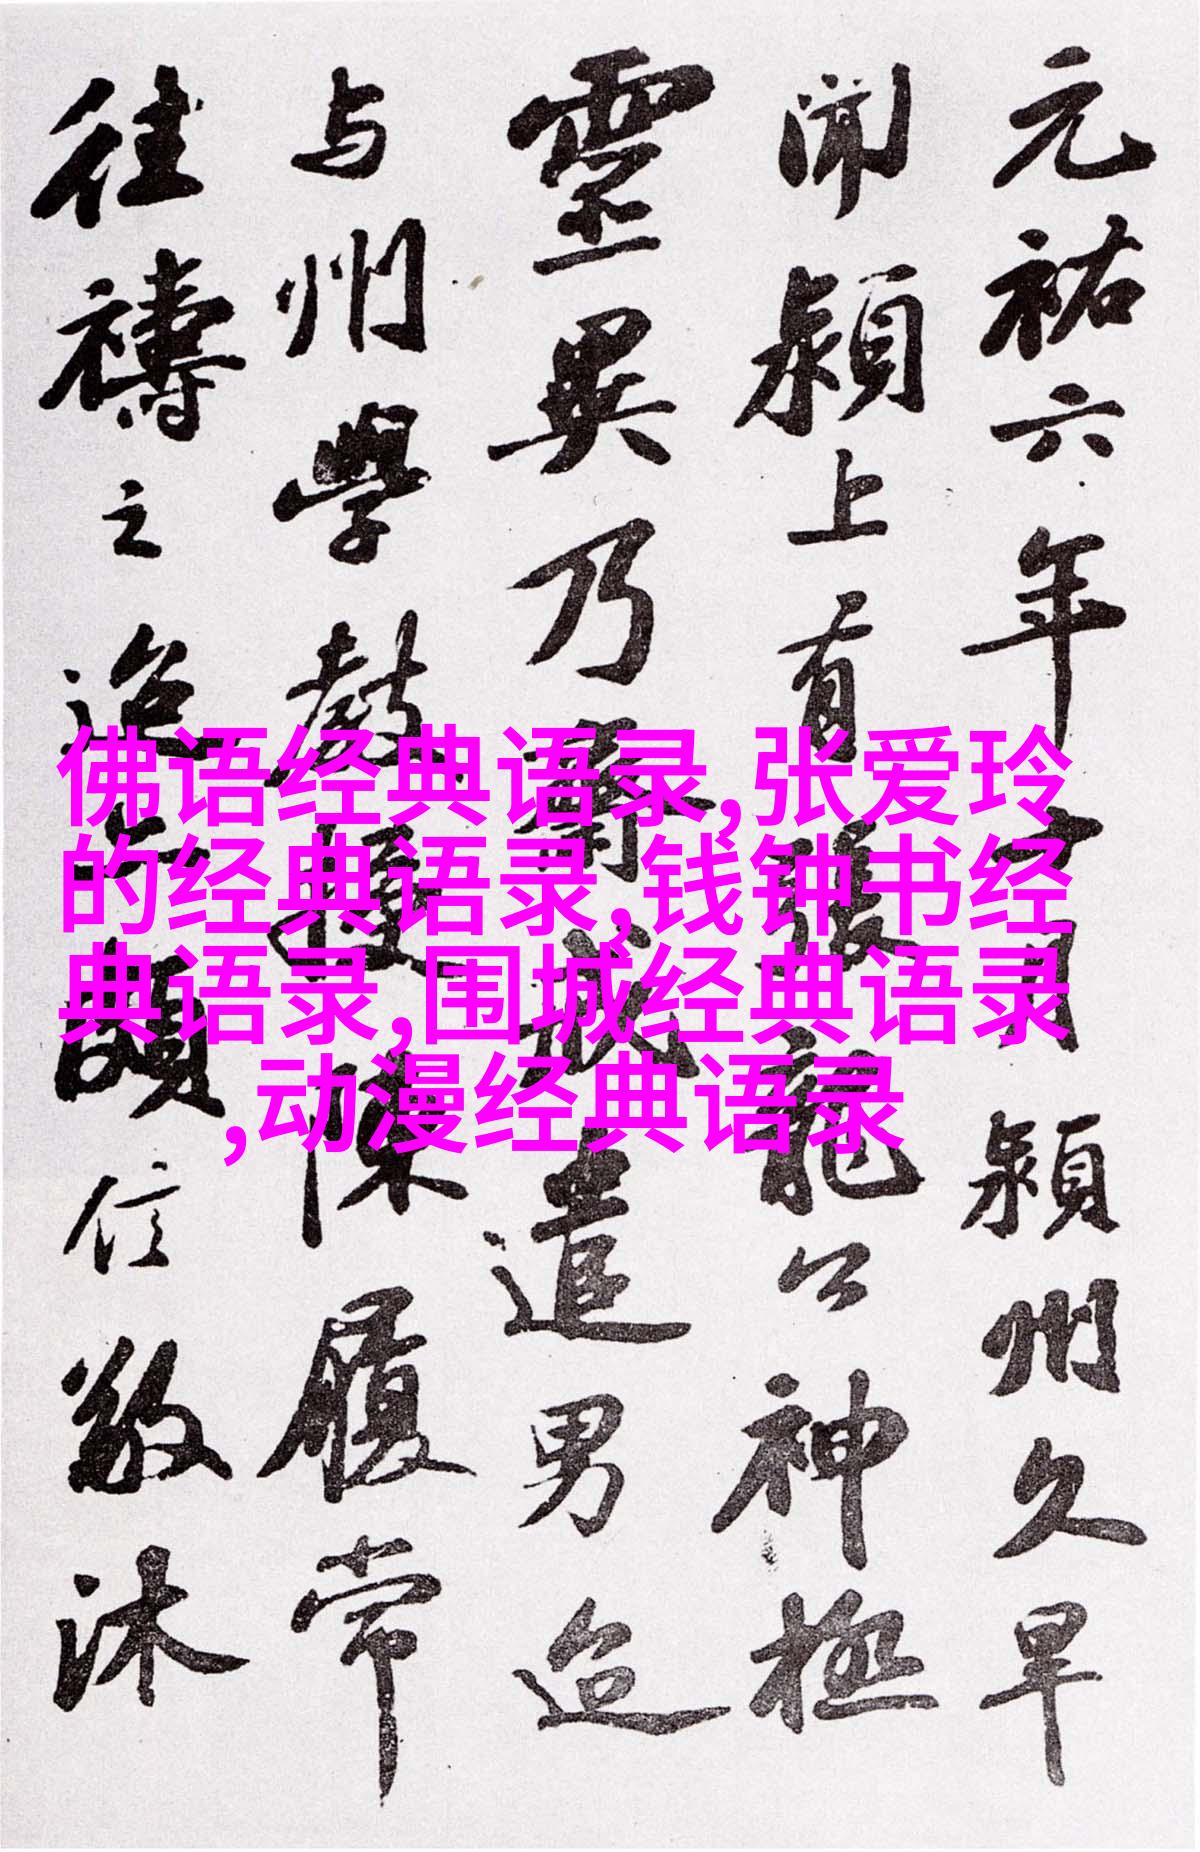 元祐六年十月潁州久旱
聞潁上有張龍公神極
靈異乃齋戒遣男迨
与州學教授陳履常
往禱之迨亦頗信敬沐
佛语经典语录,张爱玲
的经典语录,钱钟书经
典语录,围城经典语录
,动漫经典语录